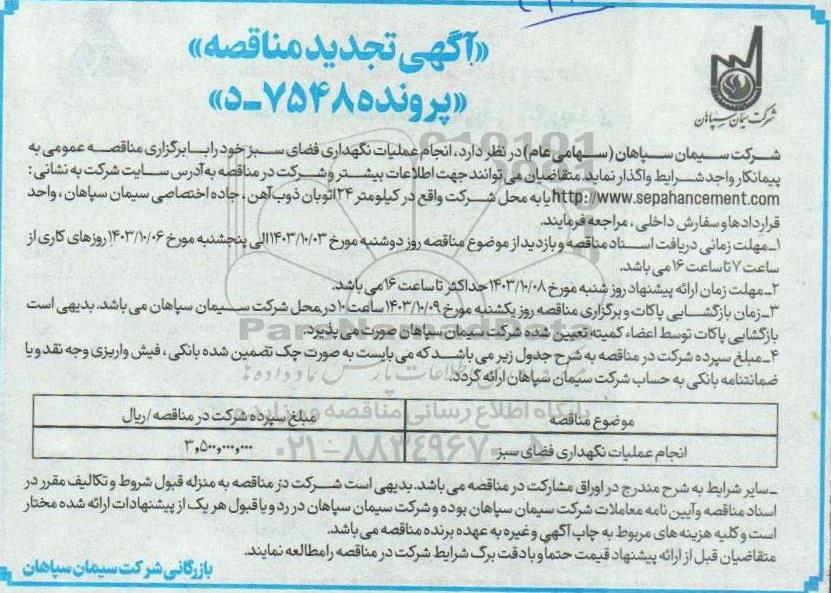 «آگهی تجدید مناقصه»
«پرونده ۷۵۴۸-د»
شرکت سیمان سپاهان
شرکت سیمان سپاهان (سهامی عام) در نظر دارد، انجام عملیات نگهداری فضای سبز خود را با برگزاری مناقصه عمومی به
پیمانکار واجد شرایط واگذار نماید. متقاضیان می توانند جهت اطلاعات بیشتر و شرکت در مناقصه به آدرس سایت شرکت به نشانی:
http://www.sepahancement.com یا به محل شرکت واقع در کیلومتر ۲۴ اتوبان ذوب آهن، جاده اختصاصی سیمان سپاهان، واحد
قراردادها و سفارش داخلی، مراجعه فرمایند.
۱ـ مهلت زمانی دریافت اسناد مناقصه و بازدید از موضوع مناقصه روز دوشنبه مورخ ۱۴۰۳/۱۰/۰۳ الی پنجشنبه مورخ ۱۴۰۳/۱۰/۰۶ روزهای کاری از
ساعت ۷ تا ساعت ۱۶ می باشد.
۲ـ مهلت زمان ارائه پیشنهاد روز شنبه مورخ ۱۴۰۳/۱۰/۰۸ حداکثر تا ساعت ۱۶ می باشد.
۳ـ زمان بازگشایی پاکات و برگزاری مناقصه روز یکشنبه مورخ ۱۴۰۳/۱۰/۰۹ ساعت ۱۰ در محل شرکت سیمان سپاهان می باشد. بدیهی است
بازگشایی پاکات توسط اعضاء کمیته تعیین شده شرکت سیمان سپاهان صورت می پذیرد.
۴ـ مبلغ سپرده شرکت در مناقصه به شرح جدول زیر می باشد که می بایست به صورت چک تضمین شده بانکی، فیش واریزی وجه نقد و یا
ضمانتنامه بانکی به حساب شرکت سیمان سپاهان ارائه گردد.
موضوع مناقصه	مبلغ سپرده شرکت در مناقصه/ریال
انجام عملیات نگهداری فضای سبز	۳,۵۰۰,۰۰۰,۰۰۰
پایگاه اطلاع رسانی مناقصه و مزایده
۰۲۱-۸۸۳۴۹۶۷۰-۵
ـ سایر شرایط به شرح مندرج در اوراق مشارکت در مناقصه می باشد. بدیهی است شرکت در مناقصه به منزله قبول شروط و تکالیف مقرر در
اسناد مناقصه و آیین نامه معاملات شرکت سیمان سپاهان بوده و شرکت سیمان سپاهان در رد و یا قبول هر یک از پیشنهادات ارائه شده مختار
است و کلیه هزینه های مربوط به چاپ آگهی و غیره به عهده برنده مناقصه می باشد.
متقاضیان قبل از ارائه پیشنهاد قیمت حتما و با دقت برگ شرایط شرکت در مناقصه را مطالعه نمایند.
بازرگانی شرکت سیمان سپاهان